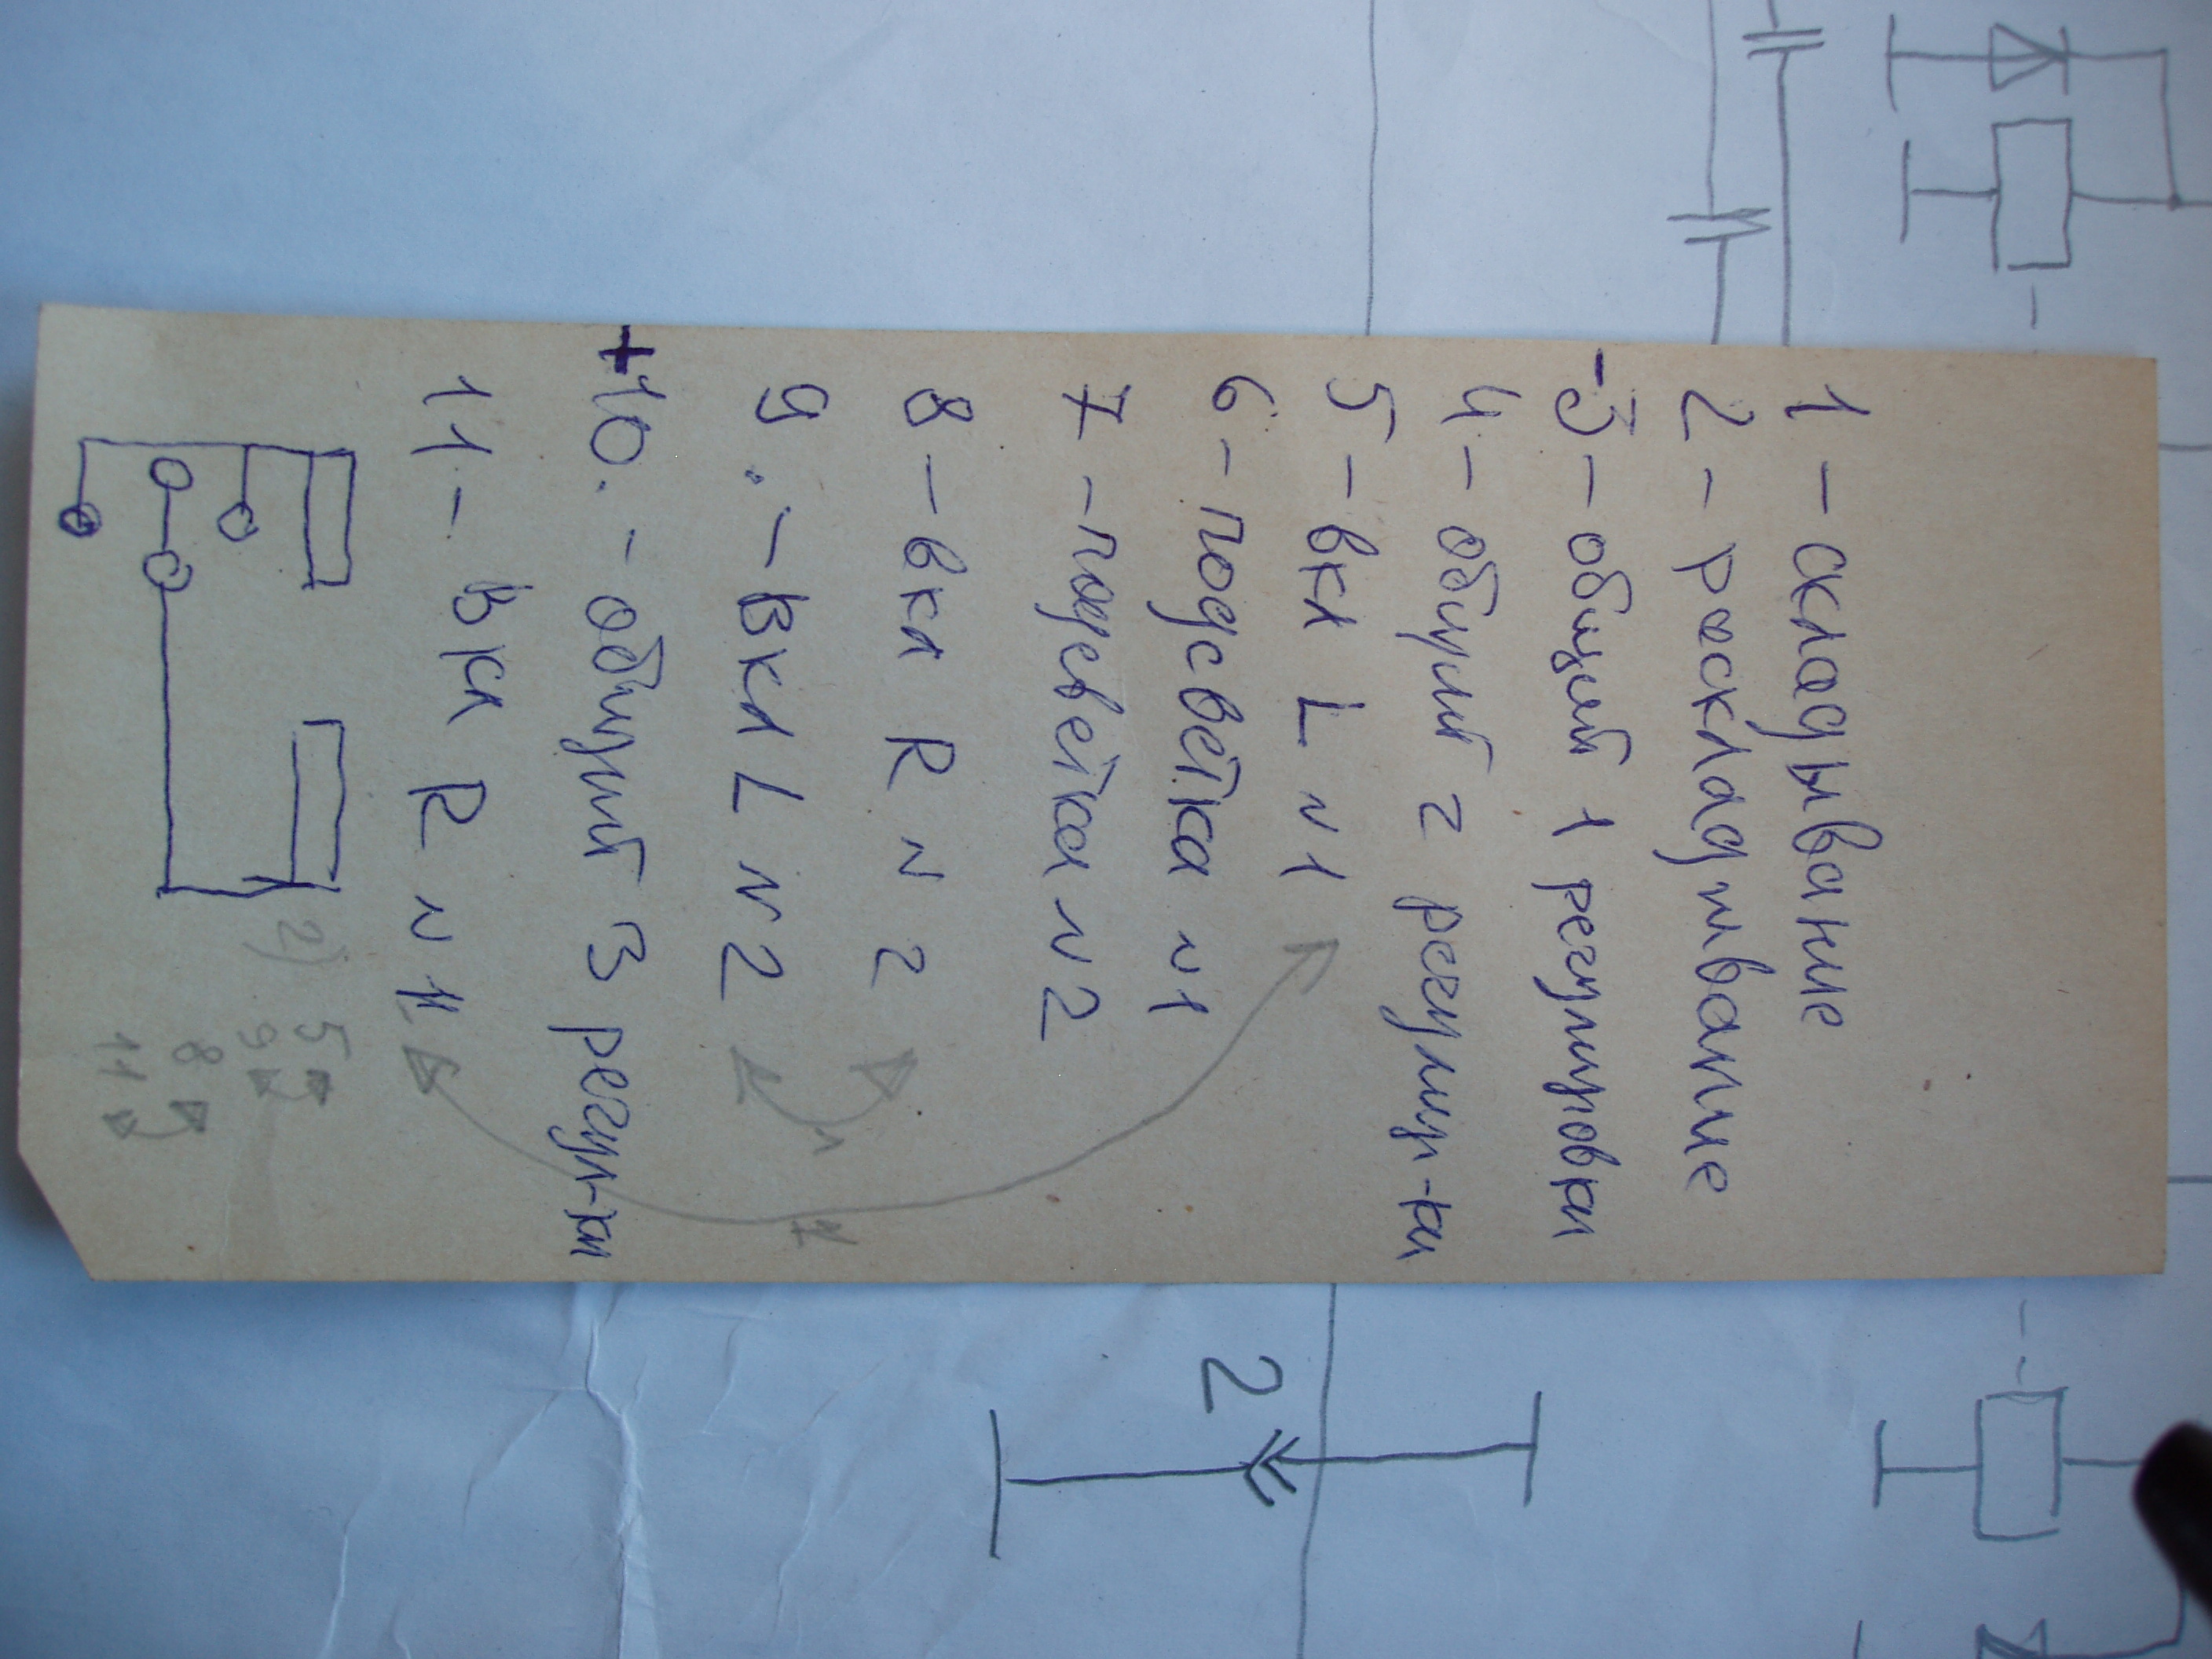 1 - складывание
2 - раскладывание
-3 - общий 1 регулировки
4 - общий 2 регулир-ки
5 - вкл L N1
6 - подсветка N1
7 - подсветка N2
8 - вкл R N 2
9. - вкл L N 2
+10. - общий 3 регул-ки
11 - вкл R N 1
1
2)
5
9
8
11
2